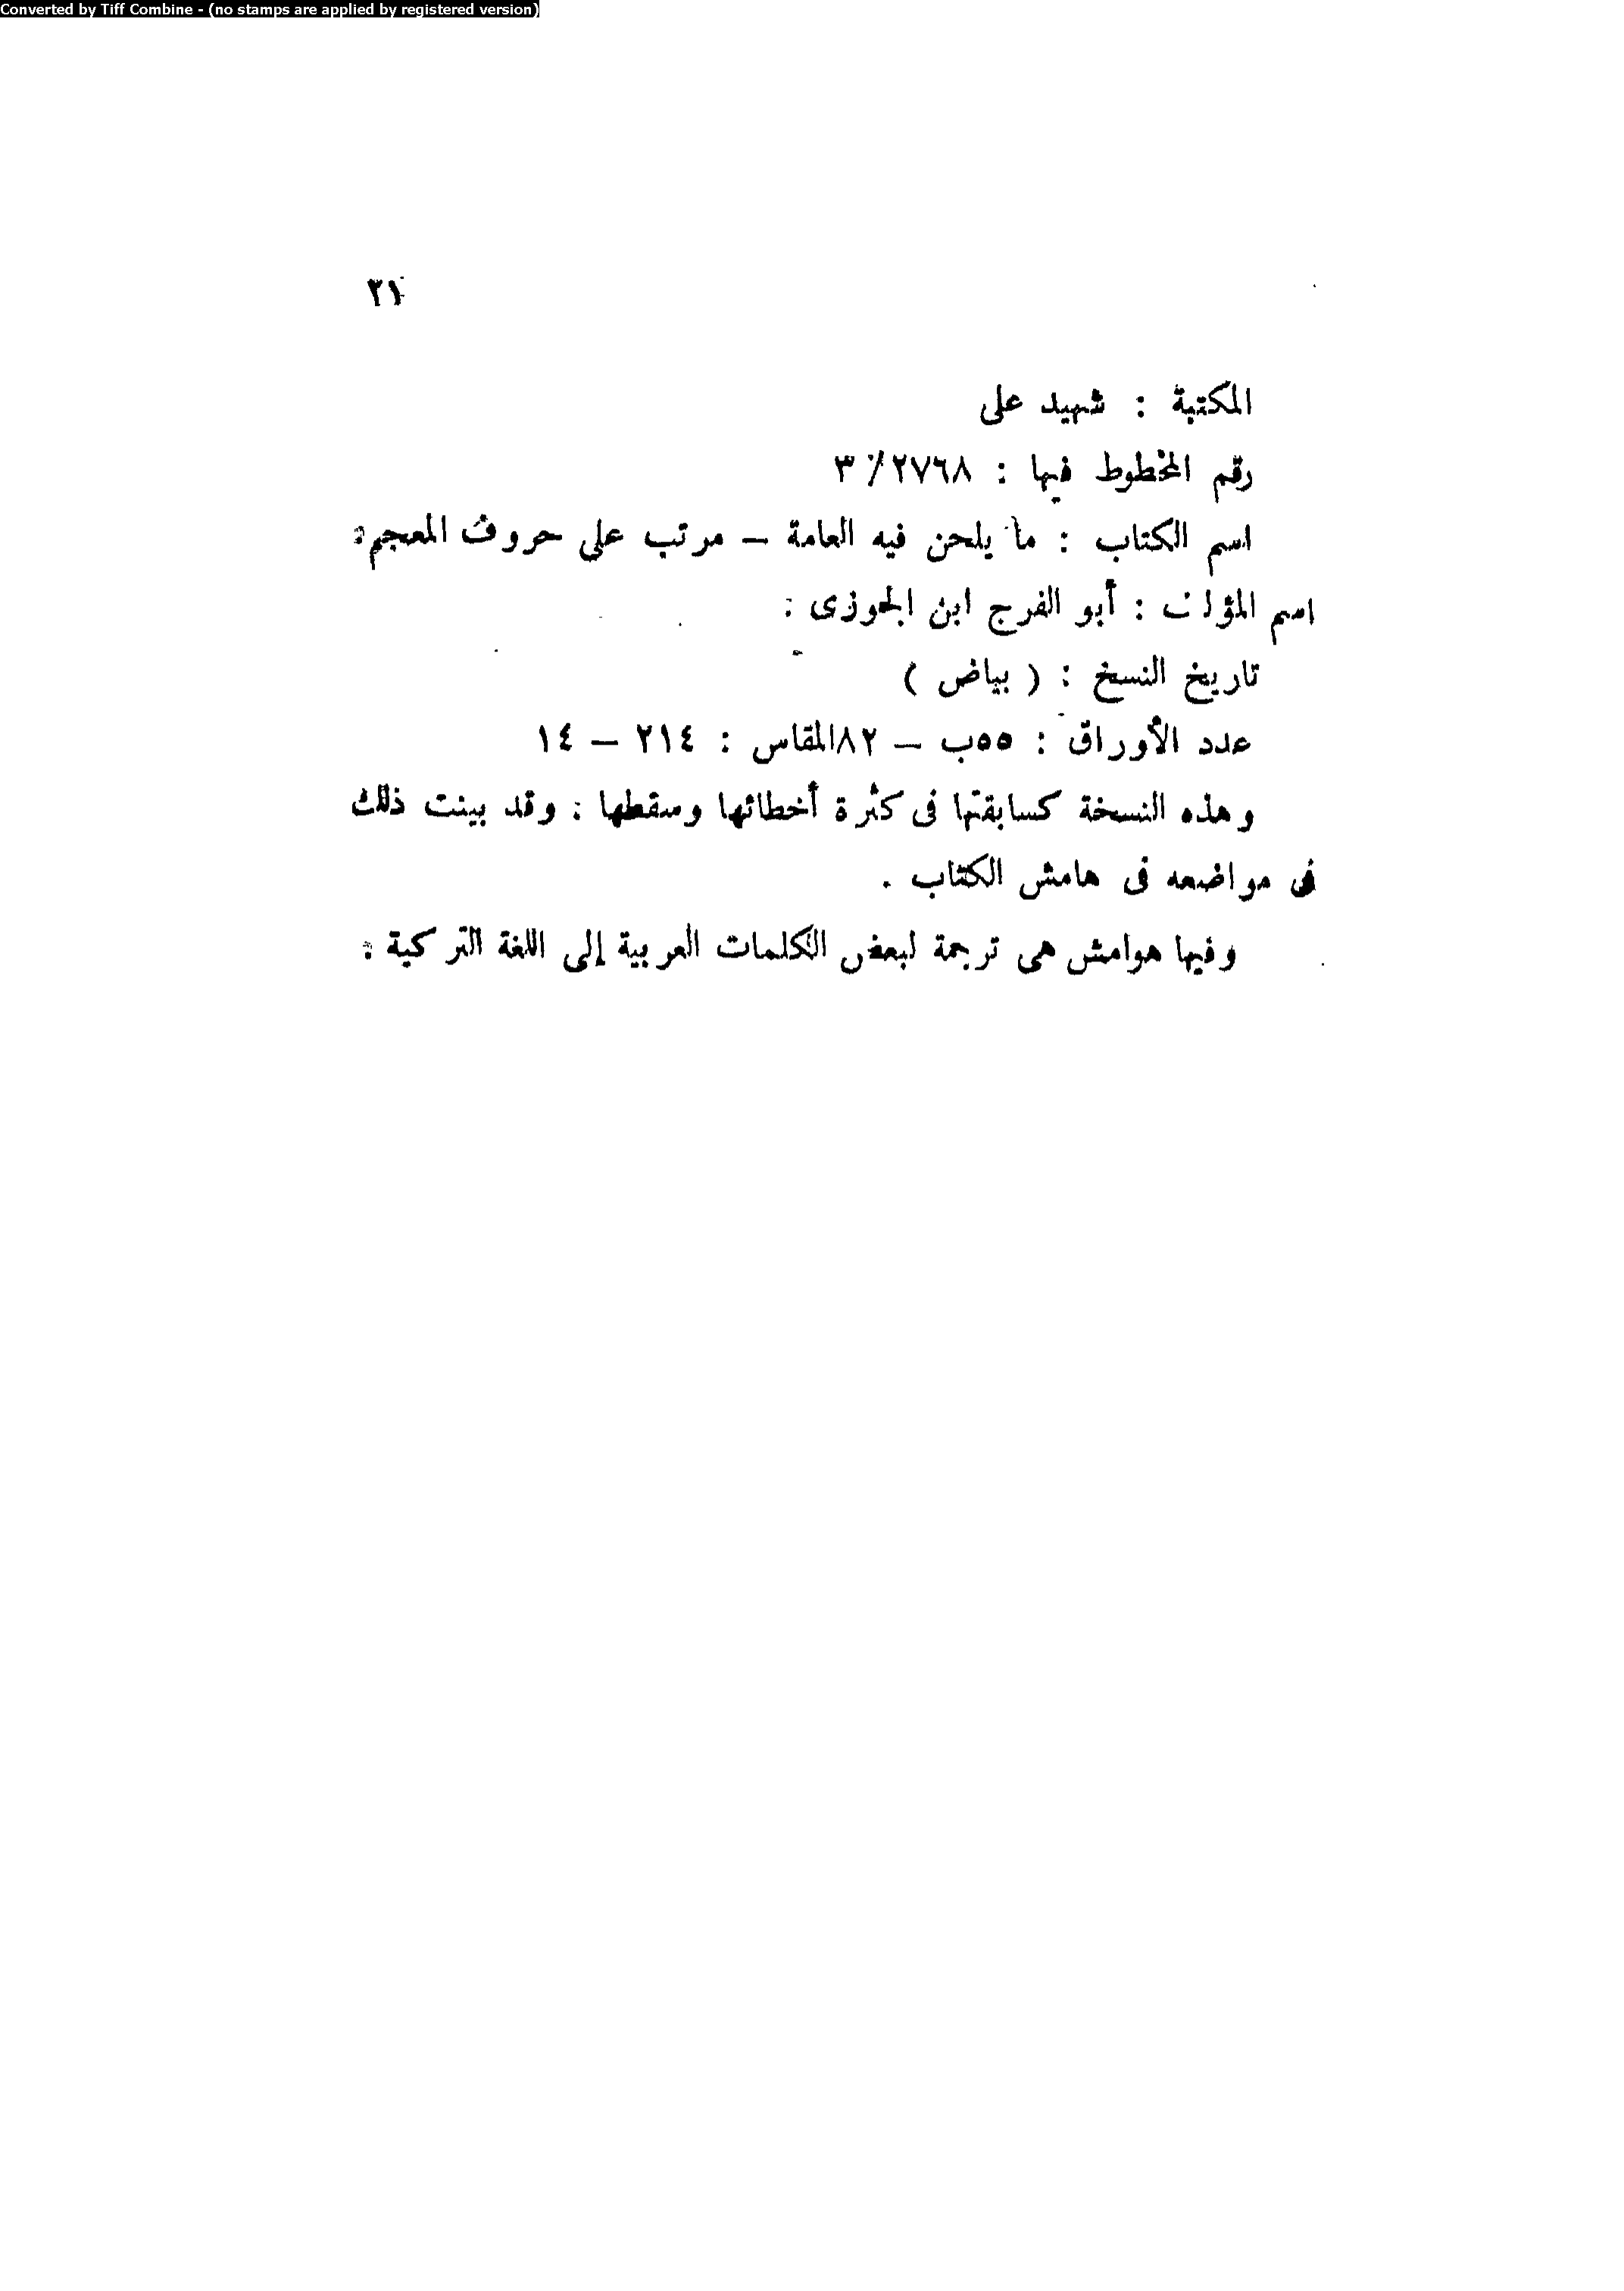 Converted by Tiff Combine - (no stamps are applied by registered version)
٢١
المكتبة : شهيد على
رقم المخطوط فيها : ٢٧٦٨ / ٣
اسم الكتاب : ما يلحن فيه العامة – مرتب على حروف المعجم :
اسم المؤلف : أبو الفرج ابن الجوزى :
تاريخ النسخ : ( بياض )
عدد الأوراق : ٥٥ب – ٨٢ المقاس : ٢١٤ – ١٤
وهذه النسخة كسابقتها فى كثرة أخطائها وسقطها : وقد بينت ذلك
فى مواضعه فى هامش الكتاب .
وفيها هوامش هى ترجمة لبعض الكلمات العربية إلى اللغة التركية :